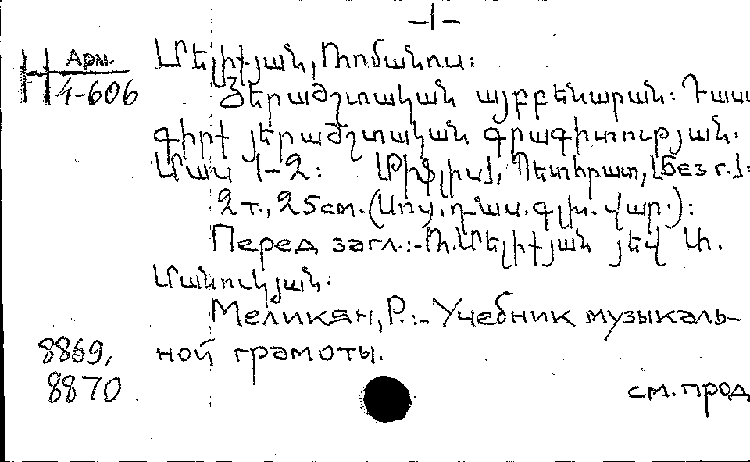 -1-
Арм.
Н 4-606
Մելիքյան, Ռոմանոս:
Յերաժշտական այբբենարան: Դաս
գիրք յերաժշտական գրագիտության.
Մաս 1-2: [Թիֆլիս], Պետհրատ, [без г.]:
2т., 25см. (Սոց. դաս. գլխ. վար.):
Перед загл.:-Ռ. Մելիքյան յեվ Ա.
Մանուկյան:
Меликян, Р.:- Учебник музыкаль-
8869, ной грамоты.
8870
см. прод